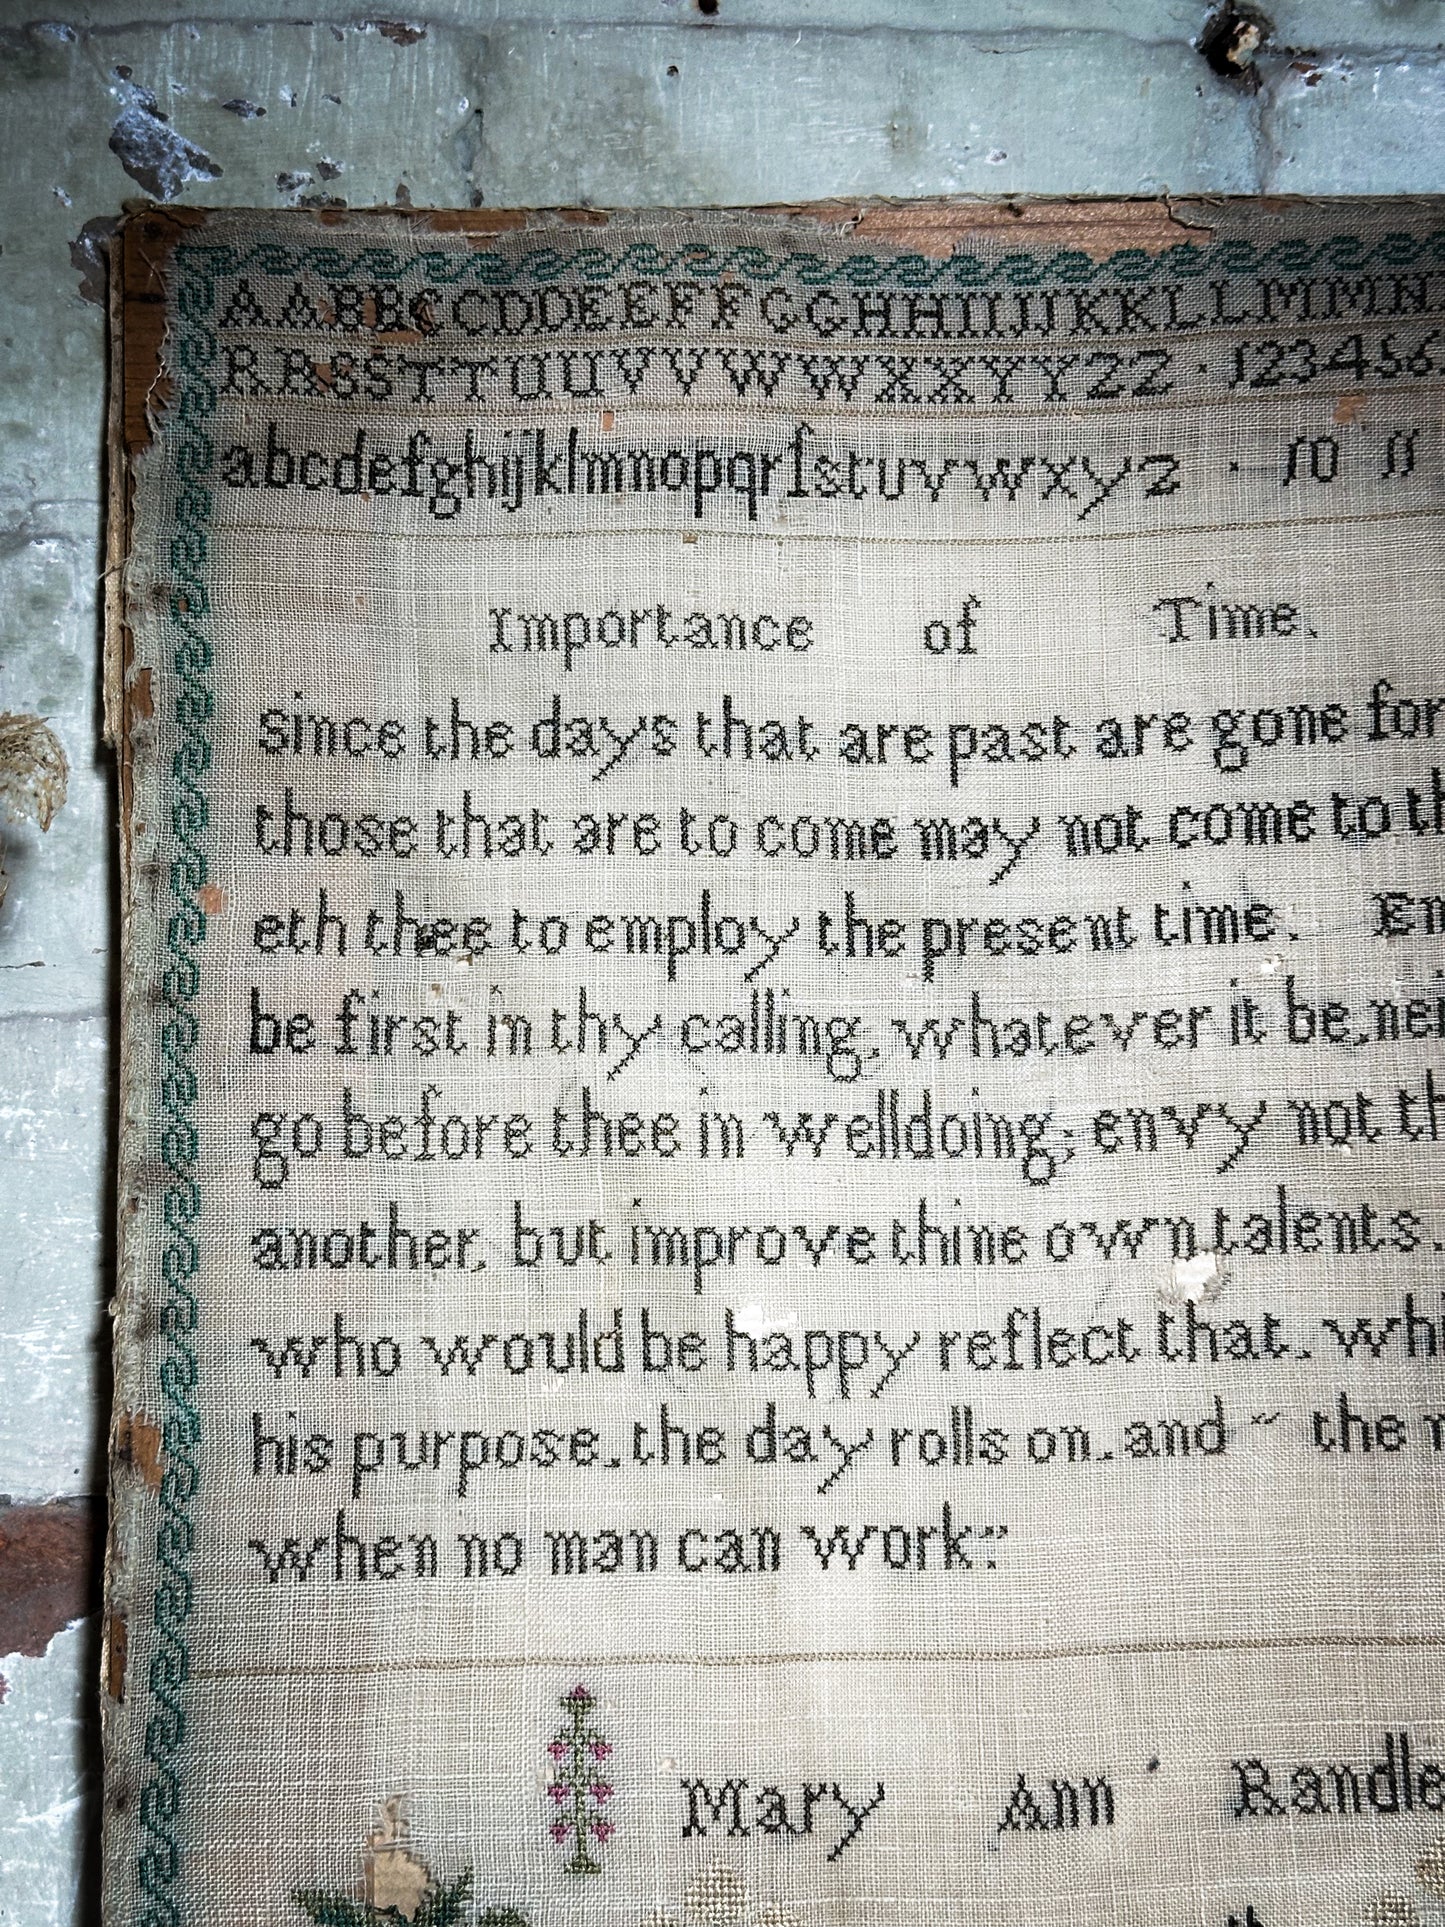 AABBCCDDEEFFGGHHIIJJKKLLMMN
RRSSTTUUVVWWXXYYZZ . 123456
abcdefghijklmnopqrſstuvwxyz . 10 11
Importance of Time.
since the days that are past are gone for
those that are to come may not come to th
eth thee to employ the present time. Em
be first in thy calling, whatever it be, nei
go before thee in welldoing; envy not th
another, but improve thine own talents.
who would be happy reflect that. whi
his purpose. the day rolls on. and ~ the n
when no man can work:
Mary Ann Randle